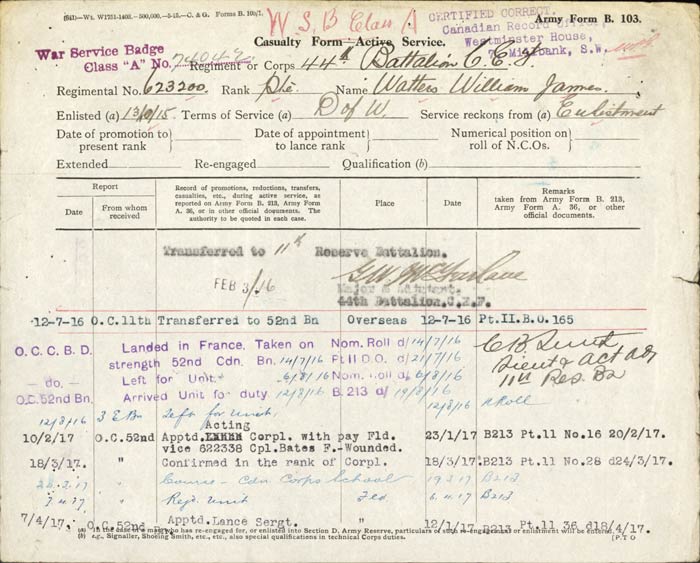 (841)—Wt. W1751-1403.—500,000.—5-15.—C. & G. Forms B. 103/1.
W S B Class A
CERTIFIED CORRECT.
Army Form B. 103.
Canadian Record Office,
Casualty Form—Active Service.
Westminster House,
7, Millbank, S.W.
War Service Badge
Class "A" No.
Regiment or Corps 44th Battalion C.E.F.
Regimental No. 623200. Rank Pte. Name Watters William James.
Enlisted (a) Terms of Service (a) D of W. Service reckons from (a) Enlistment
Date of promotion to present rank } Date of appointment to lance rank } Numerical position on roll of N.C.Os. }
Extended Re-engaged Qualification (b)
Report
Date From whom received
Record of promotions, reductions, transfers, casualties, etc., during active service, as reported on Army Form B. 213, Army Form A. 36, or in other official documents. The authority to be quoted in each case.
Place
Date
Remarks
taken from Army Form B. 213, Army Form A. 36, or other official documents.
Transferred to 11th Reserve Battalion.
FEB 3/16
G W McFarlane
Major &
44th Battalion.C.E.F.
12-7-16 O.C.11th Transferred to 52nd Bn Overseas 12-7-16 Pt.II.B.O. 165
O.C.C.B.D. Landed in France. Taken on Nom. Roll d/14/7/16
strength 52nd Cdn. Bn. 14/7/16 Pt II D.O. d/21/7/16
— do. — Left for Unit 6/8/16 Nom. Roll d/6/8/16
O.C.52nd Bn. Arrived Unit for duty 12/8/16 B.213 d/19/8/16
Lieut & Act Adj
11th Res. Bn
12/8/16 3 E Bn Left for Unit. 12/8/16 N Roll
Acting
10/2/17 O.C.52nd Apptd. Corpl. with pay Fld. 23/1/17 B213 Pt.11 No.16 20/2/17.
vice 622338 Cpl.Bates F.-Wounded.
18/3/17. " Confirmed in the rank of Corpl. 18/3/17. B213 Pt.11 No.28 d24/3/17.
" Course - Cdn Corps School 19.3.17 B213
" Rejd. Unit Fld. B213
7/4/17. O.C.52nd Apptd. Lance Sergt. " 12/1/17 B213 Pt.11 36 d18/4/17.
(a) In the case of a man who has re-engaged for, or enlisted into Section D, Army Reserve, particulars of such re-engagement or enlistment will be entered.
(b) e.g., Signaller, Shoeing Smith, etc., etc., also special qualifications in technical Corps duties.
[P.T.O